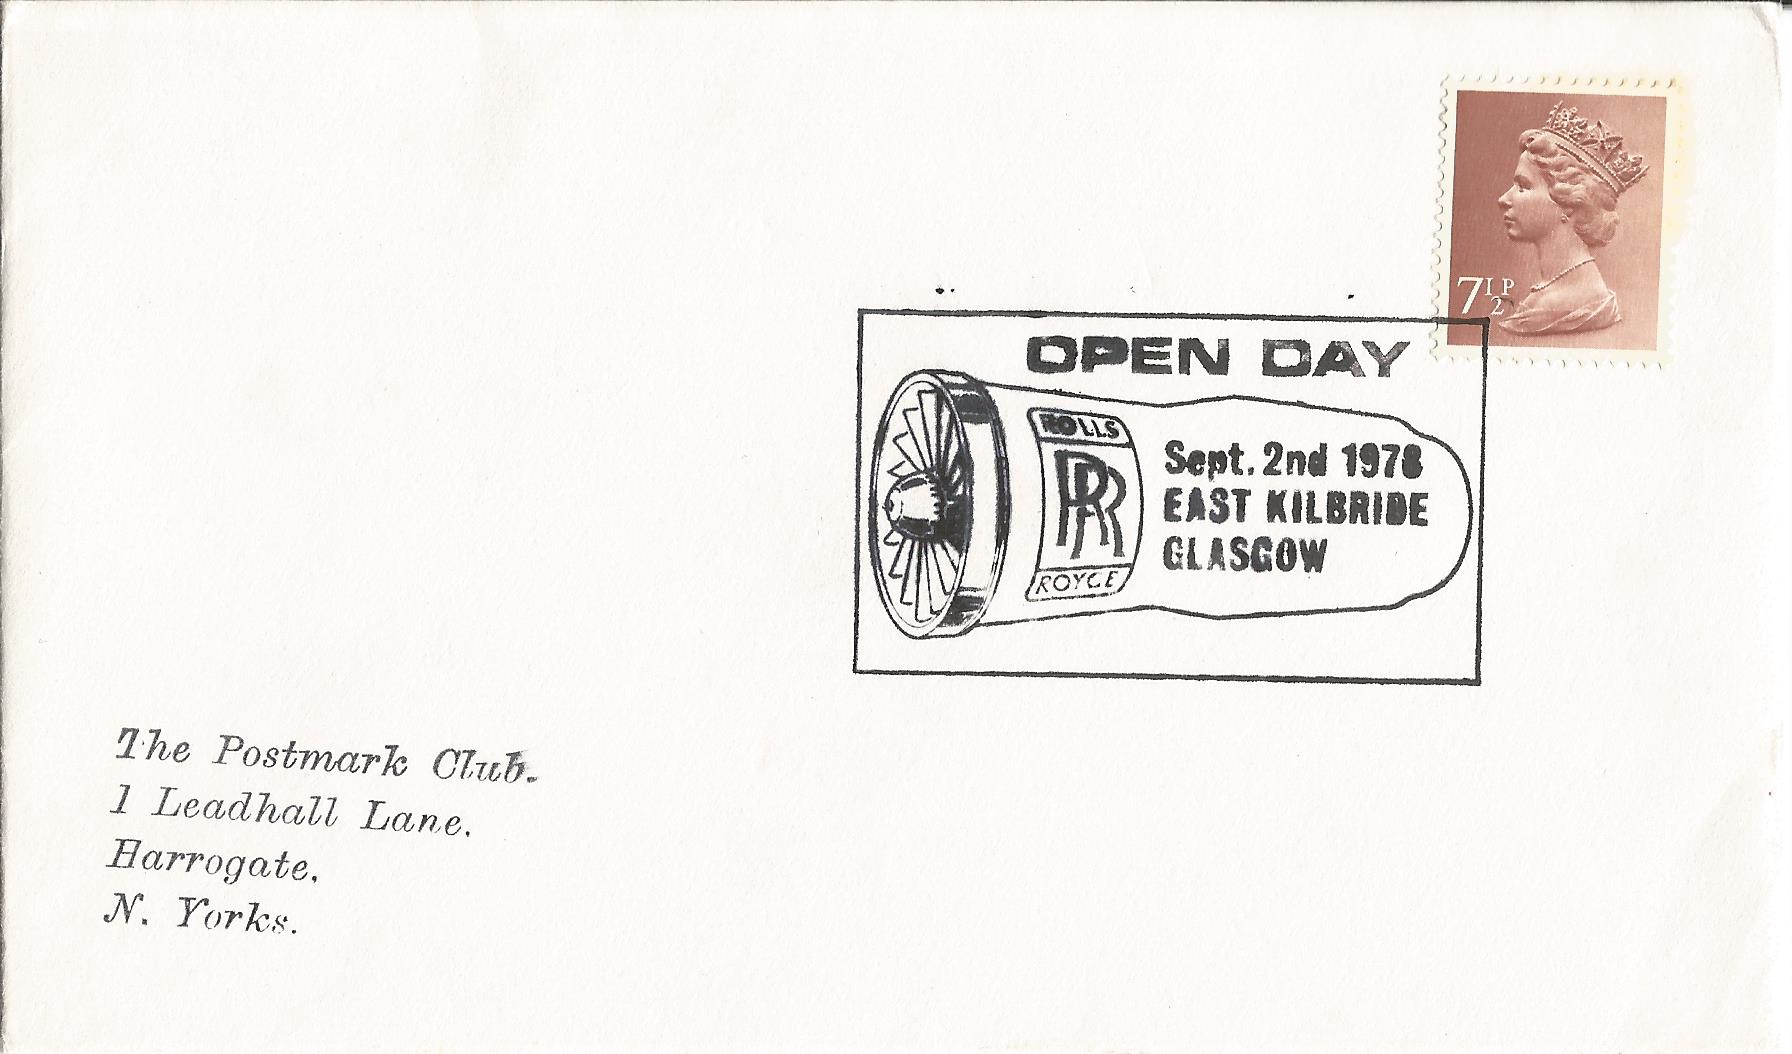 7½P
OPEN DAY
ROLLS
RR
ROYCE
Sept. 2nd 1978
EAST KILBRIDE
GLASGOW
The Postmark Club.
1 Leadhall Lane.
Harrogate.
N. Yorks.